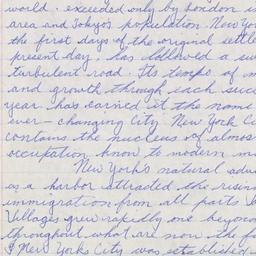 world. exceeded only by London i
area and Tokyo's population. New Yor
the first days of the original settle
present day, has followed a su
turbulent road. Its tempo of m
and growth through each succ
year has earned it the name
ever-changing City. New York Ci
contains the nucleus of almos
occupation know to modern m
New York's natural adva
as a harbor attracted the rising
immigration from all parts
Villages grew rapidly one beyon
throughout what are now the f
New Yorks City was establishe